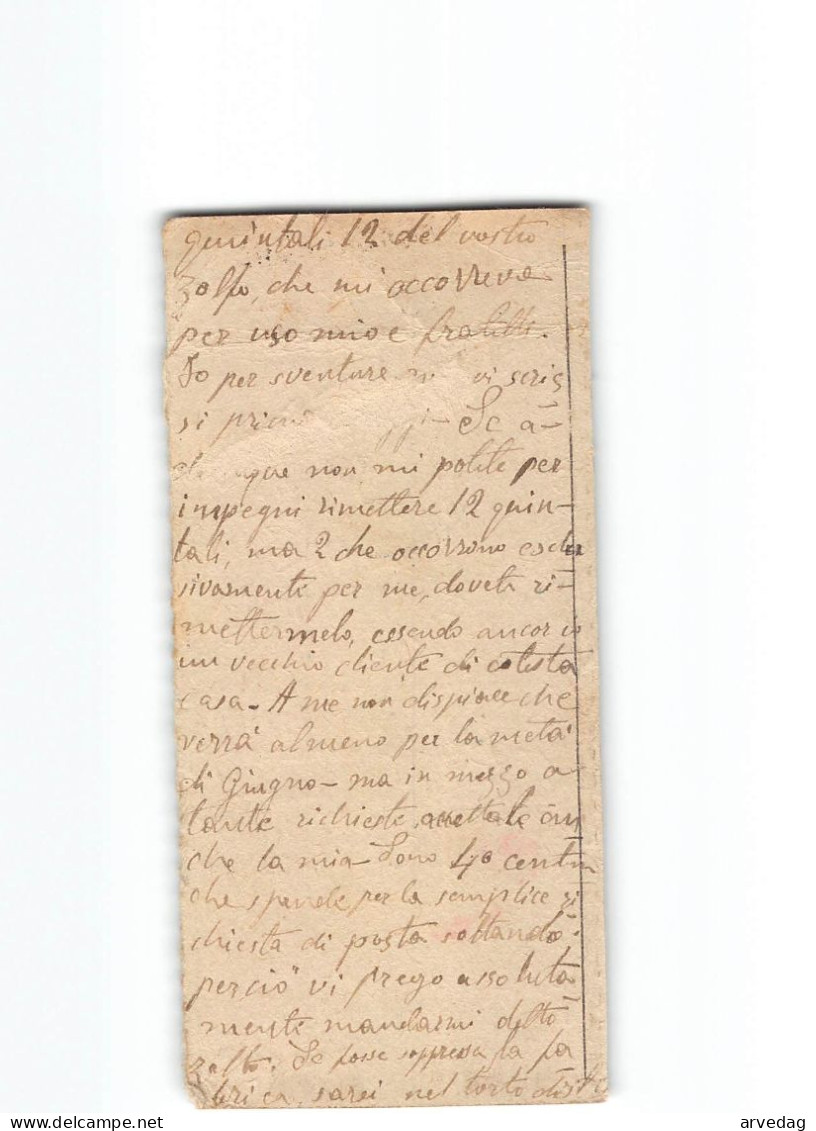 quintali 12 del vostro
zolfo, che mi occorreva
per uso mio e fratelli.
Io per sventure vi scris
si prim Se a-
dunque non mi potete per
impegni rimettere 12 quin-
tali, ma 2 che occorrono esclu
sivamente per me, dovete ri-
mettermelo, essendo ancor io
un vecchio cliente di cotesta
casa - A me non dispiace che
verrà almeno per la metà
di Giugno - ma in mezzo a
tante richieste, accettate an
che la mia - Sono 40 centm
che spendo per la semplice ri
chiesta di posta soltando.
perciò vi prego assoluta
mente mandarmi detto
zolfo. Se fosse soppressa la fa
brica, sarei nel torto
arvedag